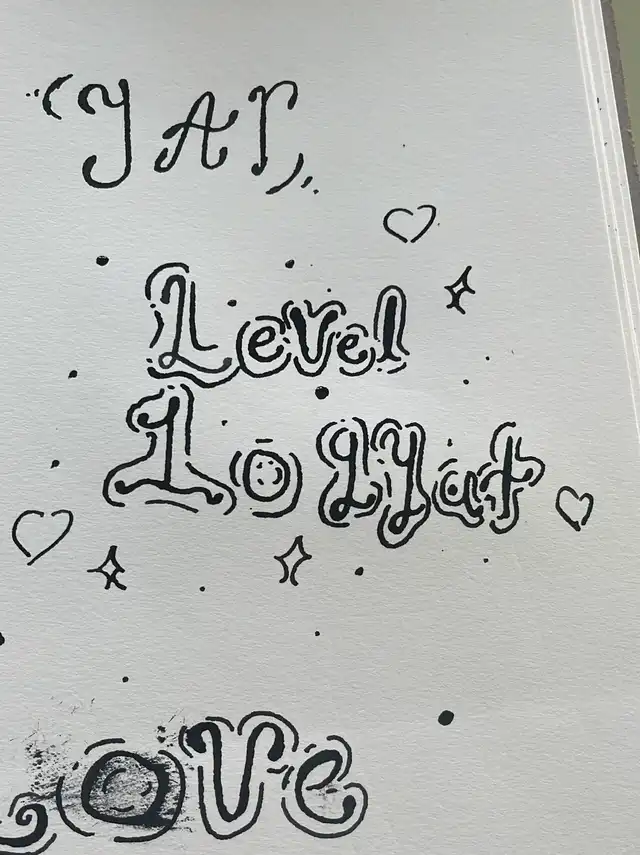 YAP
Level
10 gyat
Love